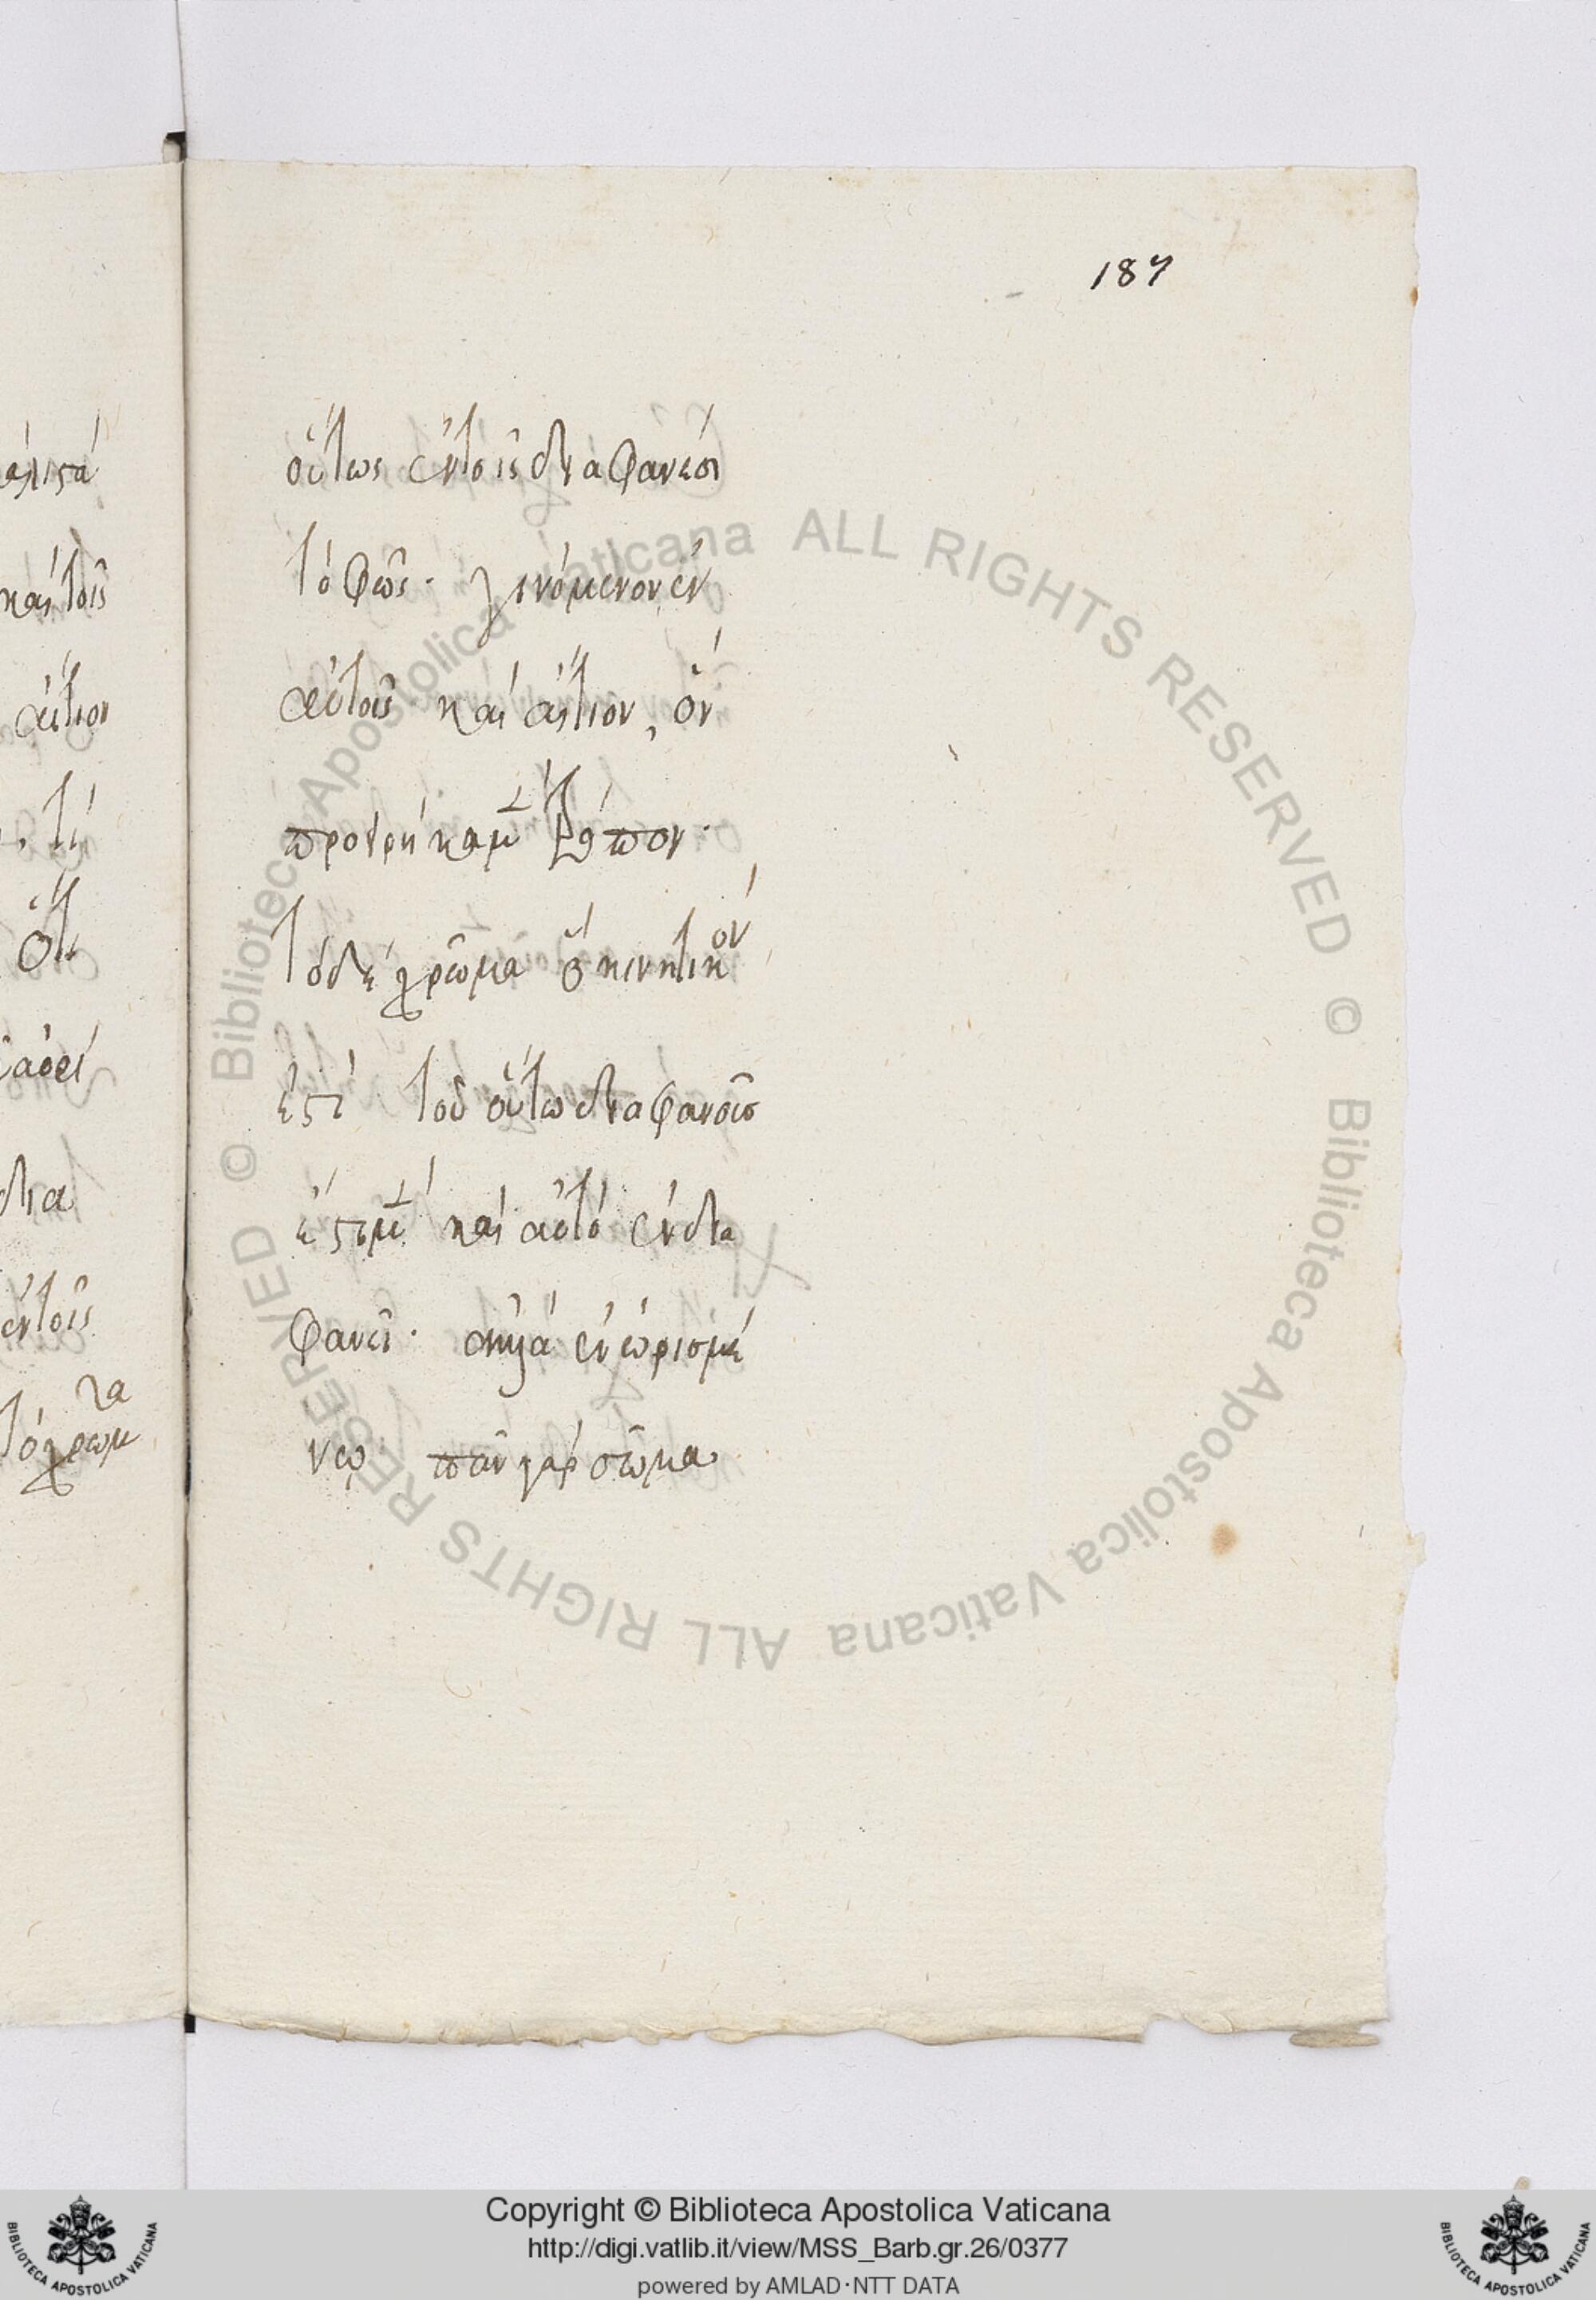 187
οὕτως ἐν τοῖς διαφανέσι
τὸ φῶς· γινόμενον ἐν
αὐτοῖς καὶ αἴτιον, ὃν
προειρήκαμ τρόπον·
τὸ δὲ χρῶμα ὃ κινητικὸν
ἐστὶ τοῦ οὕτω διαφανοῦς
ἔστι μ καὶ αὐτὸ ἐν δια
φανεῖ· ἀλλὰ ἐν ὡρισμέ
νῳ πᾶν γὰρ σῶμα
άλιστά
καὶ τοῖς
αἴτιον
τί
ὅτι
δια
ἐν τοῖς
τὸ χρῶμα
Biblioteca Apostolica Vaticana ALL RIGHTS RESERVED ©
Biblioteca Apostolica Vaticana ALL RIGHTS RESERVED ©
Copyright © Biblioteca Apostolica Vaticana
http://digi.vatlib.it/view/MSS_Barb.gr.26/0377
powered by AMLAD·NTT DATA
BIBLIOTECA APOSTOLICA VATICANA
BIBLIOTECA APOSTOLICA VATICANA